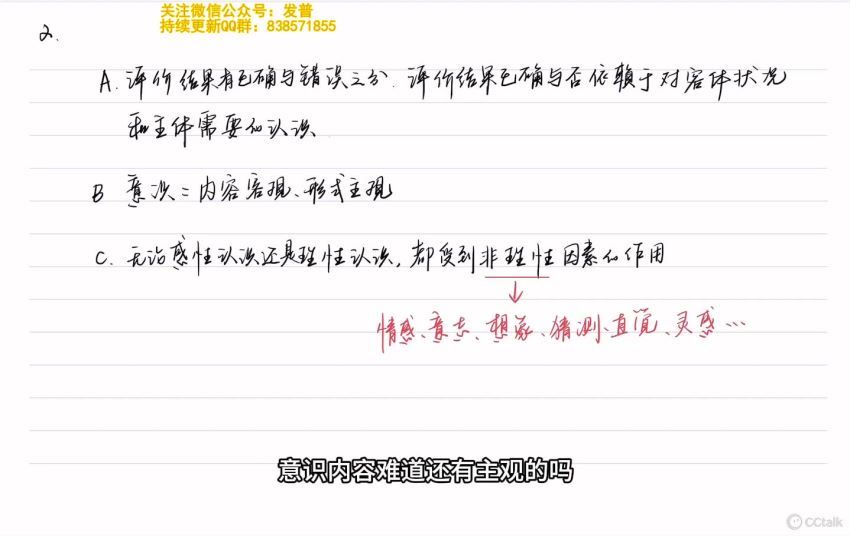 关注微信公众号：发普
持续更新QQ群：838571855
2.
A. 评价结果有正确与错误之分. 评价结果正确与否依赖于对客体状况
和主体需要的认识
B 意识=内容客观、形式主观
C. 无论感性认识还是理性认识，都受到非理性因素的作用
情感、意志、想象、猜测、直觉、灵感…
意识内容难道还有主观的吗
CCtalk